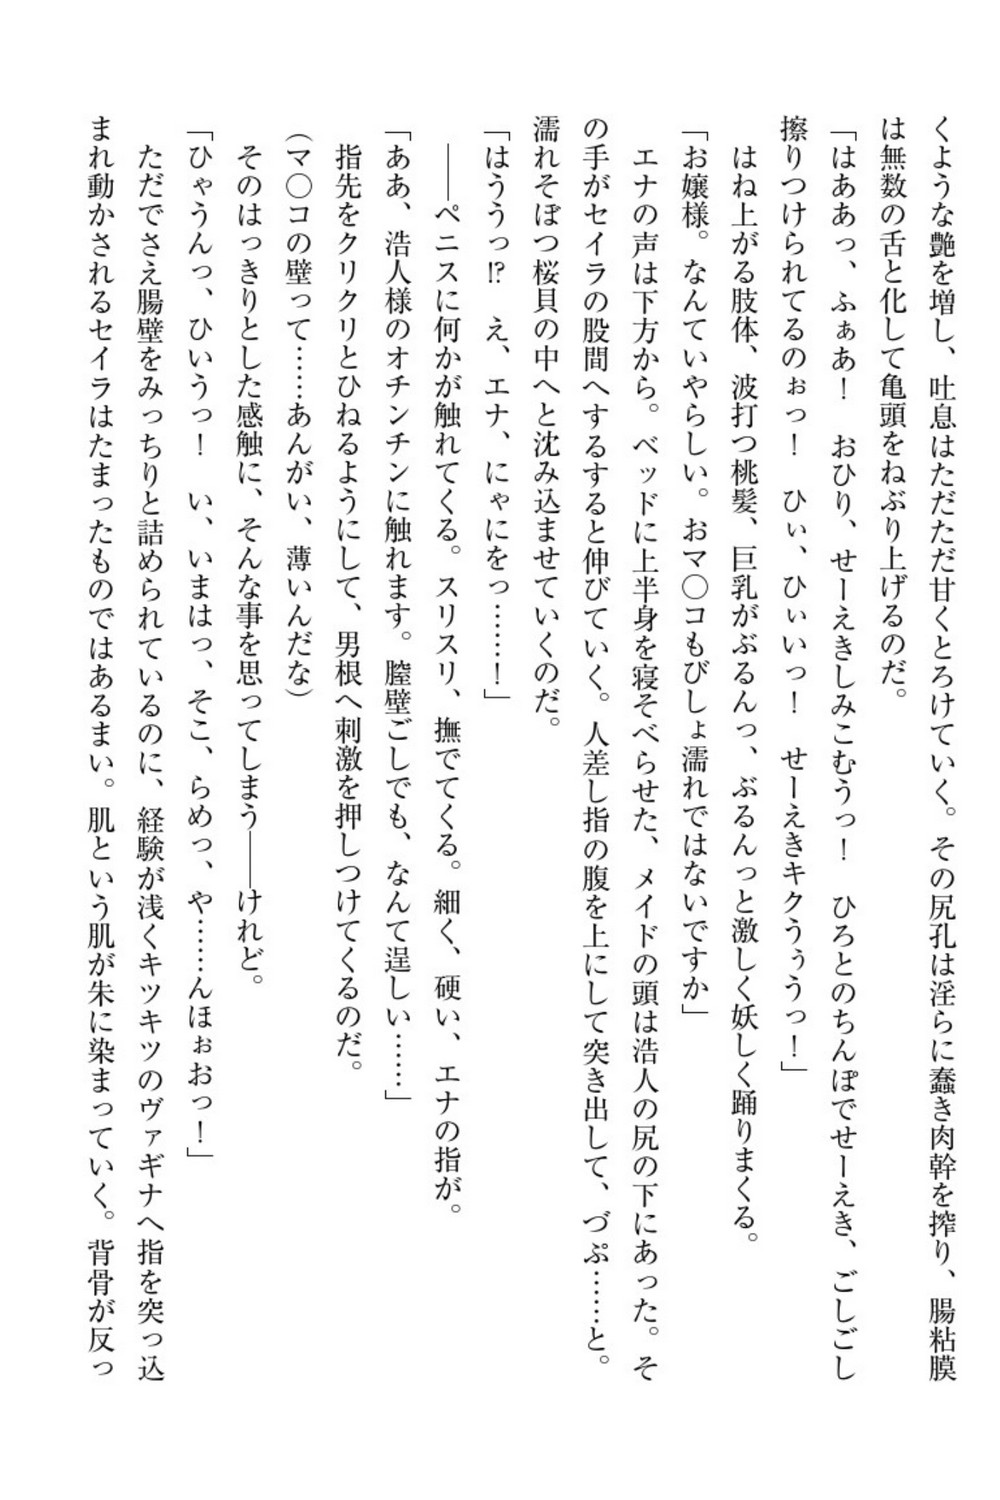 くような艶を増し、吐息はただただ甘くとろけていく。その尻孔は淫らに蠢き肉幹を搾り、腸粘膜
は無数の舌と化して亀頭をねぶり上げるのだ。
「はああっ、ふぁあ！　おひり、せーえきしみこむうっ！　ひろとのちんぽでせーえき、ごしごし
擦りつけられてるのぉっ！　ひぃ、ひぃいっ！　せーえきキクうぅうっ！」
　はね上がる肢体、波打つ桃髪、巨乳がぶるんっ、ぶるんっと激しく妖しく踊りまくる。
「お嬢様。なんていやらしい。おマ〇コもびしょ濡れではないですか」
　エナの声は下方から。ベッドに上半身を寝そべらせた、メイドの頭は浩人の尻の下にあった。そ
の手がセイラの股間へするすると伸びていく。人差し指の腹を上にして突き出して、づぷ……と。
濡れそぼつ桜貝の中へと沈み込ませていくのだ。
「はううっ!?　え、エナ、にゃにをっ……！」
　――ペニスに何かが触れてくる。スリスリ、撫でてくる。細く、硬い、エナの指が。
「ああ、浩人様のオチンチンに触れます。膣壁ごしでも、なんて逞しい……」
　指先をクリクリとひねるようにして、男根へ刺激を押しつけてくるのだ。
（マ〇コの壁って……あんがい、薄いんだな）
　そのはっきりとした感触に、そんな事を思ってしまう――けれど。
「ひゃうんっ、ひいうっ！　い、いまはっ、そこ、らめっ、や……んほぉおっ！」
　ただでさえ腸壁をみっちりと詰められているのに、経験が浅くキツキツのヴァギナへ指を突っ込
まれ動かされるセイラはたまったものではあるまい。肌という肌が朱に染まっていく。背骨が反っ